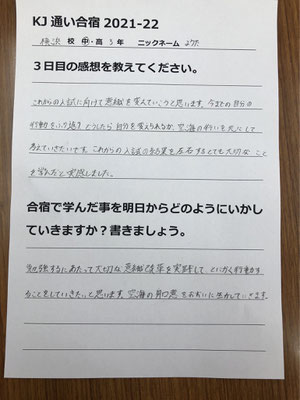 KJ 通い合宿 2021-22
横浜 校 中・高 3 年 ニックネーム
3日目の感想を教えてください。
これからの入試に向けて意識を変えていこうと思います。今までの自分の
行動をふり返り どうしたら自分を変えられるか、空海の行いを元にして
考えていきたいです。これからの入試の結果を左右するとても大切なこと
を学んだと実感しました。
合宿で学んだ事を明日からどのようにいかし
ていきますか？書きましょう。
勉強するにあたって大切な意識改革を実践して、とにかく行動す
ることをしていきたいと思います。空海の をおおいに生かしていきます。